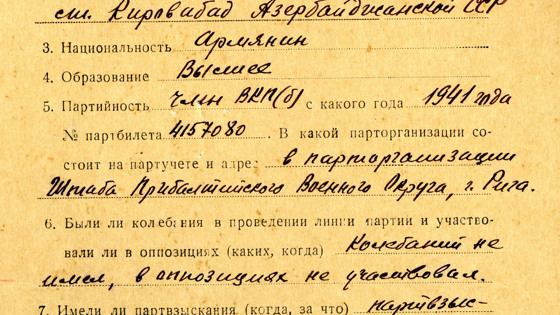 ст. Кировабад Азербайджанской ССР
3. Национальность Армянин
4. Образование Высшее
5. Партийность член ВКП(б) с какого года 1941 года
№ партбилета 4157080. В какой парторганизации со-
стоит на партучете и адрес в парторганизации
Штаба Прибалтийского Военного Округа, г. Рига.
6. Были ли колебания в проведении линии партии и участво-
вали ли в оппозициях (каких, когда) Колебаний не
имел, в оппозициях не участвовал.
7. Имели ли партвзыскания (когда, за что) партвзыс-